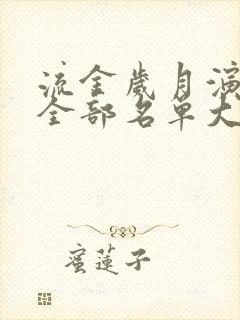 流金歲月演
全部名單大
蜜蓮子